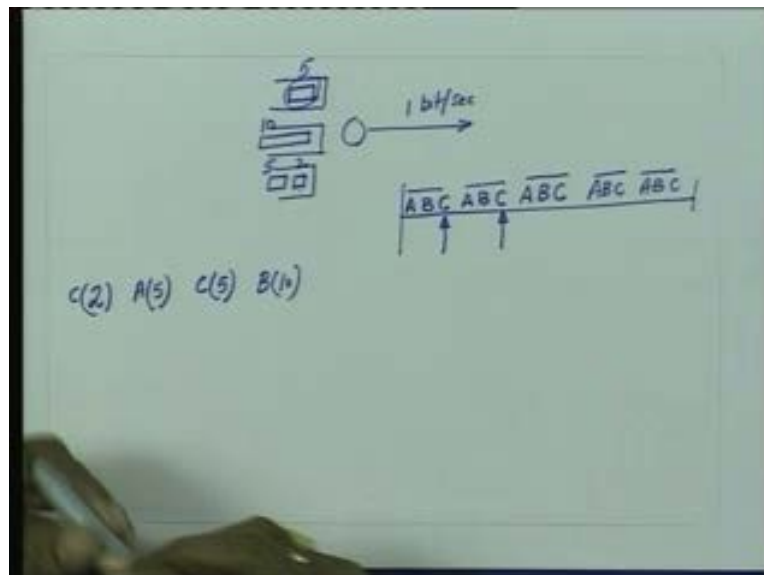 5
1 bit/sec
10
5 2
A B C A B C A B C A B C A B C
C(2) A(5) C(5) B(10)